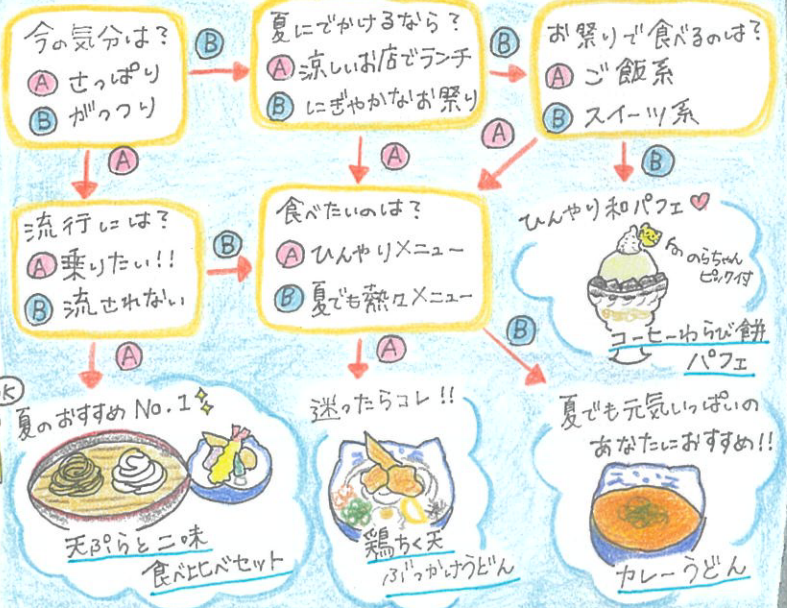 今の気分は?
A さっぱり
B がっつり
B
夏にでかけるなら?
A 涼しいお店でランチ
B にぎやかなお祭り
B
お祭りで食べるのは?
A ご飯系
B スイーツ系
A
A
A
B
流行には?
A 乗りたい!!
B 流されない
B
食べたいのは?
A ひんやりメニュー
B 夏でも熱々メニュー
ひんやり和パフェ♥
のらちゃん
ピック付
コーヒーわらび餅
パフェ
A
A
B
夏のおすすめ No.1
天ぷらと二味
食べ比べセット
迷ったらコレ!!
鶏ちく天
ぶっかけうどん
夏でも元気いっぱいの
あなたにおすすめ!!
カレーうどん